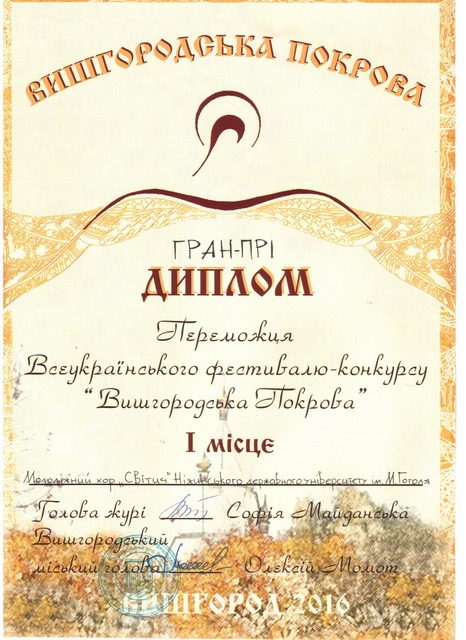 ВИШГОРОДСЬКА ПОКРОВА
ГРАН-ПРІ
ДИПЛОМ
Переможця
Всеукраїнського фестивалю-конкурсу
“Вишгородська Покрова”
І місце
Молодіжний хор „Світич” Ніжинського державного університету ім. М.Гоголя
Голова журі Софія Майданська
Вишгородський
міський голова Олексій Момот
ВИШГОРОД 2016